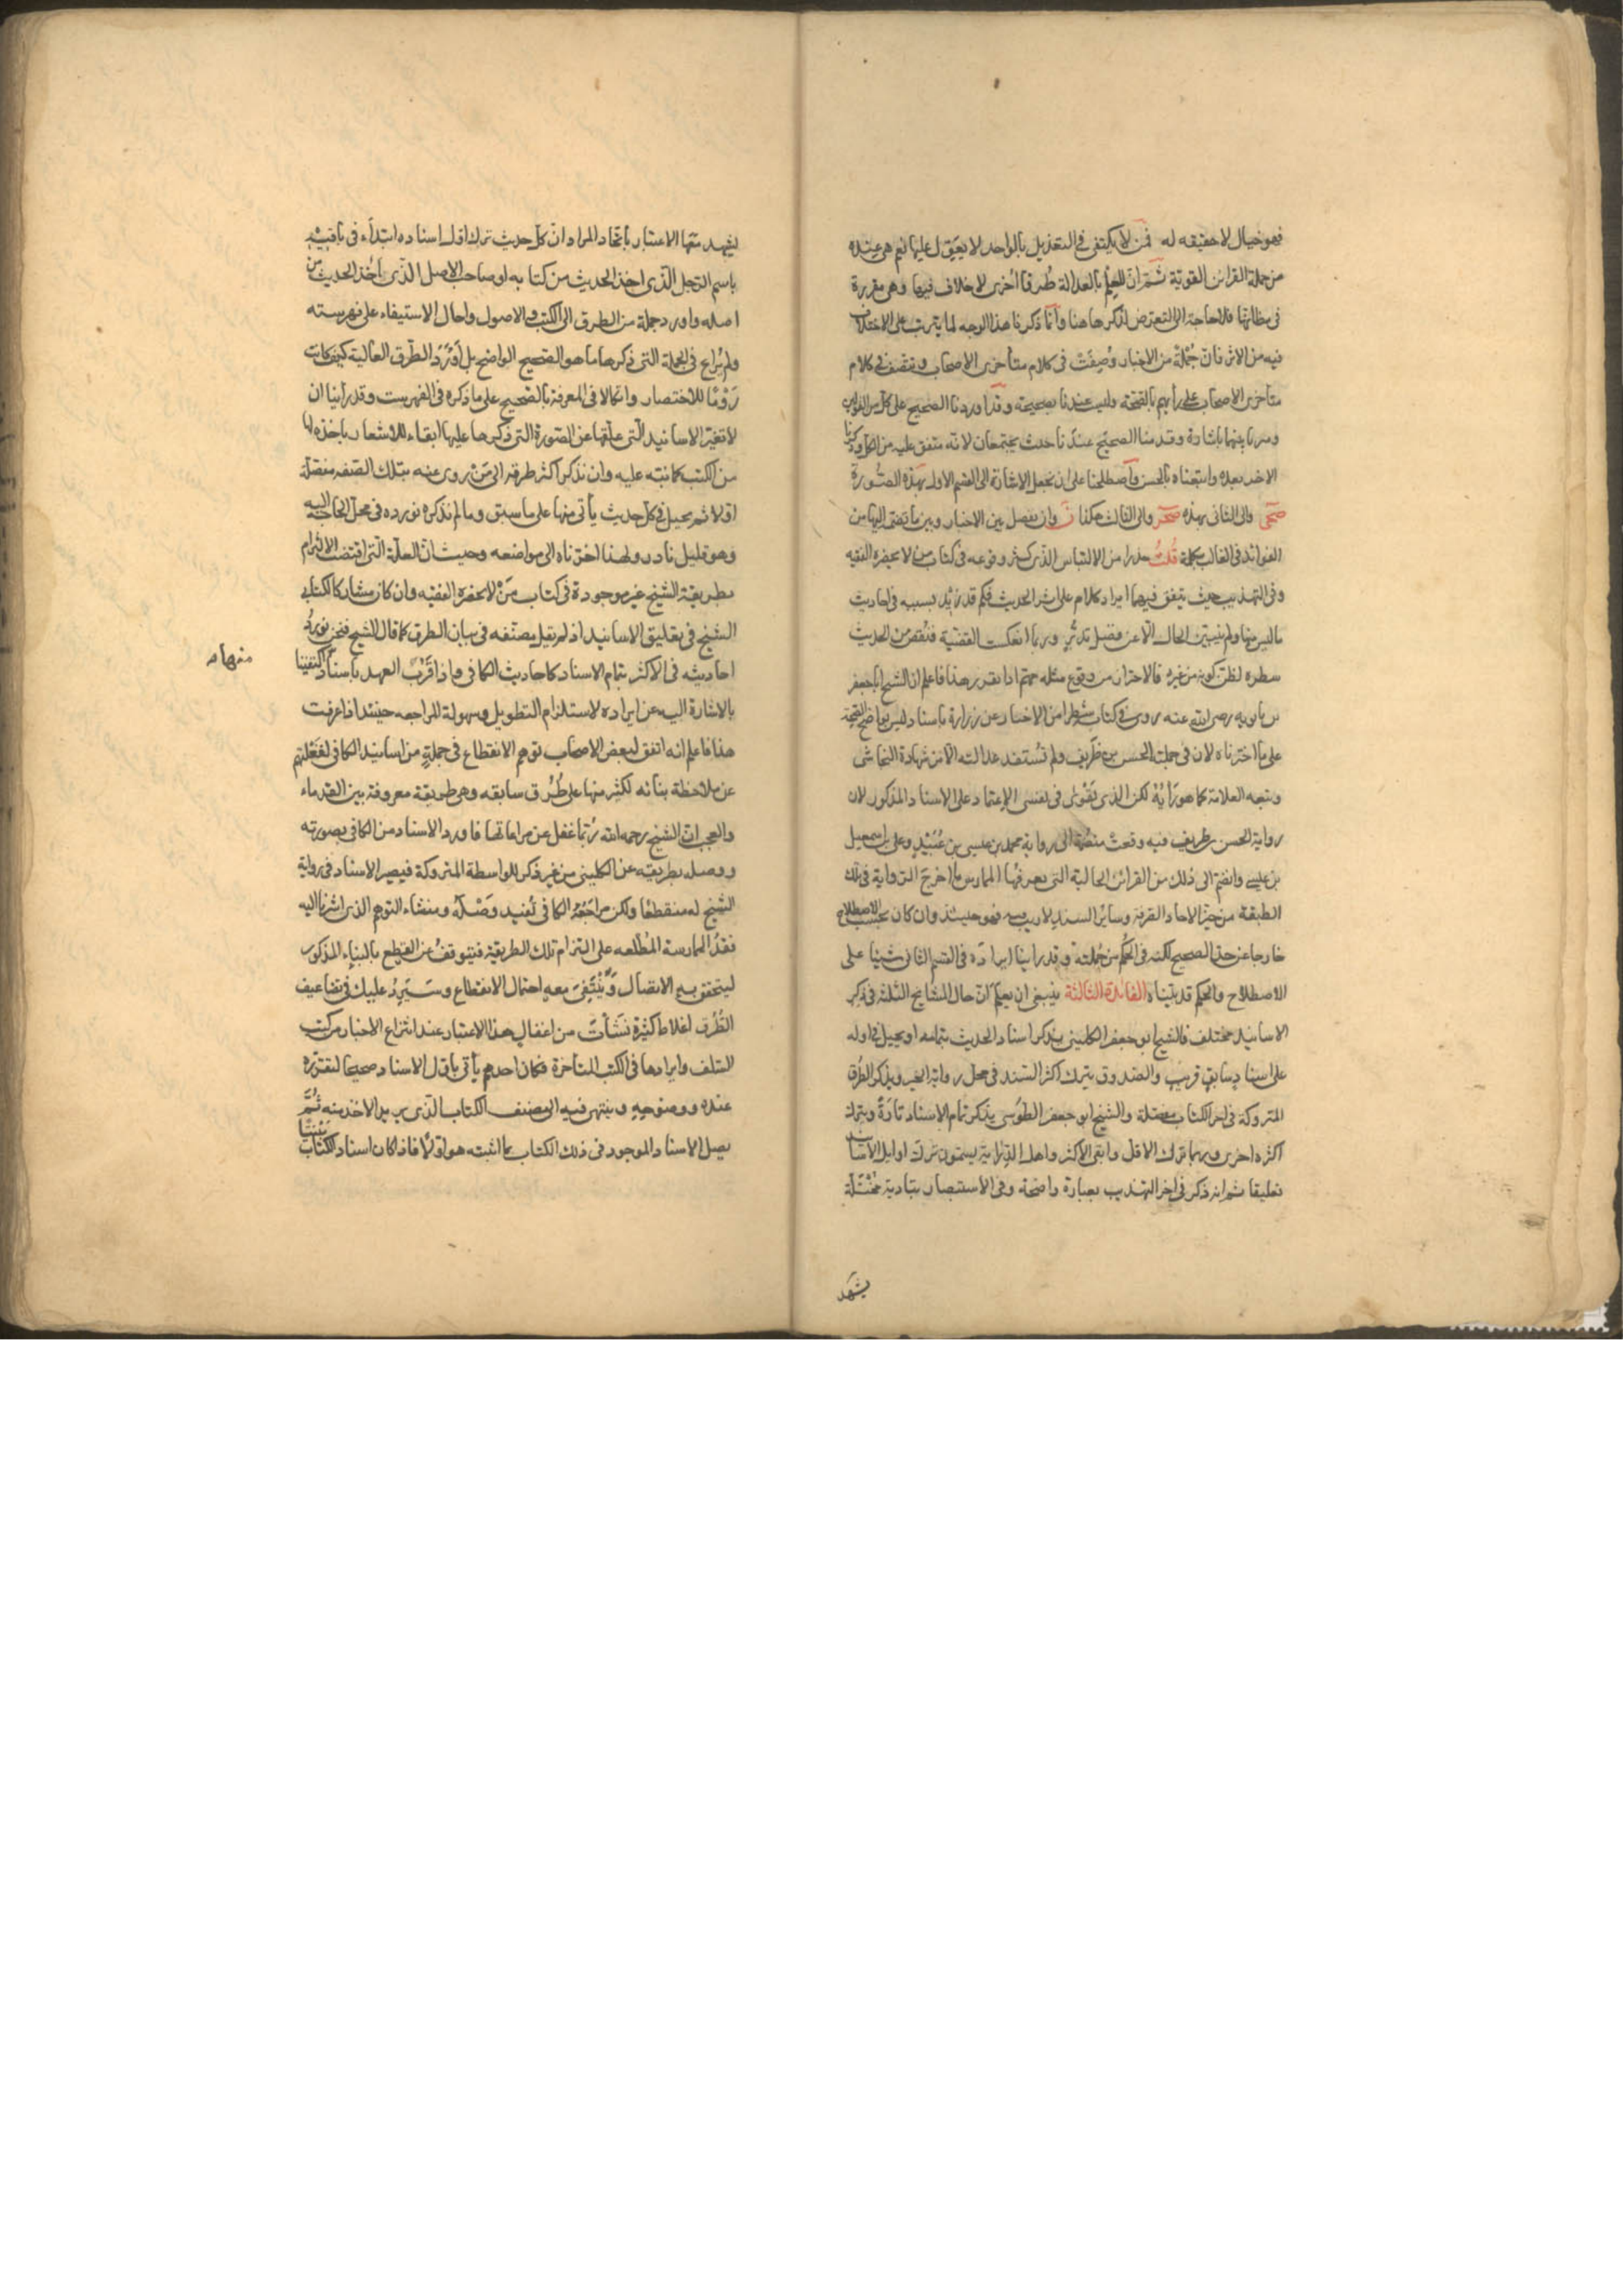 فهو خيال لا حقيقه له فمن لا يكتفى فى التعديل بالواحد لا يعوّل عليها نعم هى عنده
من جملة القرائن القوية ثم ان للعلم بالعدالة طُرقا اُخرى لا خلاف فيها وهى مقررة
فى مظانها فلا حاجة الى التعرّض لذكرها هنا وانّما ذكرنا هذا الوجه لما يترتب على الاختلاف
فيه من الاثر فانّ جُمْلَةً من الاخبار وُصِفَتْ فى كلام متأخرى الاصحاب
متأخرى الاصحاب على رأيهم بالصّحّة وليست عندنا بصحيحة وقد اوردنا الصحيح على كل من القولين
وميزنا بينهما باشارة وقدمنا الصحيح عندنا حيث يجتمعان لانّه متفق عليه من الكل وذكرنا
الاخر بعده واتبعناه بالحسن واصطلحنا على ان نجعل الاشارة الى القسم الاول بهذه الصُّورة
صحى والى الثانى بهذه صحر والى الثالث هكذا ن وان نفصل بين الاخبار وبين ما يضم اليها من
الفوائد فى الغالب بكلمة قُلتُ حذرا من الالتباس الذى كثر وقوعه فى كتاب من لا يحضره الفقيه
وفى التهذيب حيث يتفق فيهما ايراد كلام على اثر الحديث فكم قد زيد بسببه فى احاديث
ما ليس منها ولم يتبين الحال الّا عن فضل تدبُّر وربما انعكست القضيّة فنُقص من الحديث
سطره لظن كونه من غيره فالاحتراز من وقوع مثله مهم اذا تقرر هذا فاعلم ان الشيخ ابا جعفر
بن بابويه رضى الله عنه روى فى كتابه شطرا من الاخبار عن زرارة باسناد ليس بواضح الصّحّة
على ما اخترناه لان فى جملته الحسن بن ظريف ولم تُستفد عدالته الّا من شهادة النجاشى
وتبعه العلامة كما هو رَأيُهُ لكن الذى يَقْوىٰ فى نفسى الاعتماد على الاسناد المذكور لان
رواية الحسن بن ظريف فيه وقعت منضمّة الى رواية محمد بن عيسى بن عُبَيْدٍ وعلى بن اسمعيل
بن عيسى وانضم الى ذلك من القرائن الحالية التى يعرفها الممارس ما اخرج الرواية فى تلك
الطبقة من حيّز الاحاد الصرفة وسائر السند لا ريب فيه فهو حينئذ وان كان بحسب الاصطلاح
خارجا عن حدّ الصحيح لكنه فى الحُكم من جُملته وقد رأينا ايراده فى القسم الثانى مشيا على
الاصطلاح والحكم قد بيّناه الفائدة الثالثة ينبغى ان يعلم انّ حال المشايخ الثلثة فى ذكر
الاسانيد مختلف فالشيخ ابو جعفر الكلينى يذكر اسناد الحديث بتمامه او يحيل فى اوله
على اسنادٍ سابقٍ قريبٍ والصدوق يترك اكثر السّند فى محل رواية الخبر ويذكر الطُّرق
المتروكة فى اخر الكتاب مفصّلة والشيخ ابو جعفر الطوسى يذكر تمام الاسناد تارةً ويترك
اكثره اخرى وربما ترك الاقل وابقى الاكثر واهل الدّراية يسمون ترك اوايل الاسانيد
تعليقا ثم انه ذكر فى اخر التهذيب بعبارة واضحة وفى الاستبصار بتادية مُختلّة
يشهد
ليشهد معها الاعتبار باتحاد المراد انّ كل حديث ترك اوّل اسناده ابتدأ فى باقيه
باسم الرّجل الّذى اخذ الحديث من كتابه او صاحب الاصل الّذى اخذ الحديث من
اصله واورد جملة من الطرق الى الكتب والاصول واحال الاستيفاء على فهرسته
ولم يُراع فى الجملة التى ذكرها ما هو الصحيح الواضح بل اَوْرَدَ الطّرق العالية كيف كانت
رَوْمًا للاختصار واتكالا فى المعرفة بالصّحيح على ما ذكره فى الفهرست وقد رأينا ان
لا نغيّر الاسانيد الّتى علّقها عن الصّورة التى ذكرها عليها ابقاء للاشعار باخذه لها
من الكتب كما نبّه عليه وان نذكر اكثر طرقه الى مَنْ روى عنه بتلك الصّفه مفصّلة
اولا ثم نحيل فى كل حديث يأتى منها على ما سبق وما لم نذكره نورده فى محل الحاجة اليه
وهو قليل نادر ولهذا اخرناه الى مواضعه وحيث انّ العلّة الّتى اقتضت الالتزام
بطريقة الشيخ غير موجودة فى كتاب مَنْ لا يحضره الفقيه وان كان مشاركا لكتابى
الشيخ فى تعليق الاسانيد اذ لم يقل مصنّفه فى بيان الطرق كما قال الشيخ فنحن نورد
احاديثه فى الاكثر بتمام الاسناد كاحاديث الكافى واذا قَرُبَ العهد باسناد منها اكتفينا
منها م
بالاشارة اليه عن ايراده لاستلزام التطويل وسهولة المراجعه حينئذ اذا عرفت
هذا فاعلم انه اتفق لبعض الاصحاب توهم الانقطاع فى جملةٍ من اسانيد الكافى لغَفْلتهم
عن ملاحظة بنائه لكثير منها على طُرُق سابقه وهى طريقة معروفة بين القدماء
والعجب انّ الشيخ رحمه الله رُبّما غفل عن مراعاتها فاورد الاسناد من الكافى بصورته
ووصله بطريقه عن الكلينى من غير ذكر للواسطة المتروكة فيصير الاسناد فى رواية
الشيخ له منقطعًا ولكن مراجَعَةُ الكافى تُفيد وَصْلَه ومنشاء التوهم الذى اشرنا اليه
فقدُ الممارسة المُطّلعه على التزام تلك الطريقة فيتوقفُ عن القطع بالبناء المذكور
ليتحقق به الاتصال وَيَنْتَفِىَ معه احتمال الانقطاع وسَيَرِدُ عليك فى تضاعيف
الطُّرُق اغلاط كثيرة نَشَأَت من اغفال هذا الاعتبار عند انتزاع الاخبار من كتب
السّلف وايرادها فى الكتب المتأخرة فكان احدهم يأتى باوّل الاسناد صحيحا لتقرّره
عنده ووضوحه وينتهى فيه الى مصنف الكتاب الّذى يريد الاخذ منه ثُمَّ
يصل الاسناد الموجود فى ذلك الكتاب بما اثبته هو اوّلًا فاذا كان اسناد الكتاب مَبْنيًّا